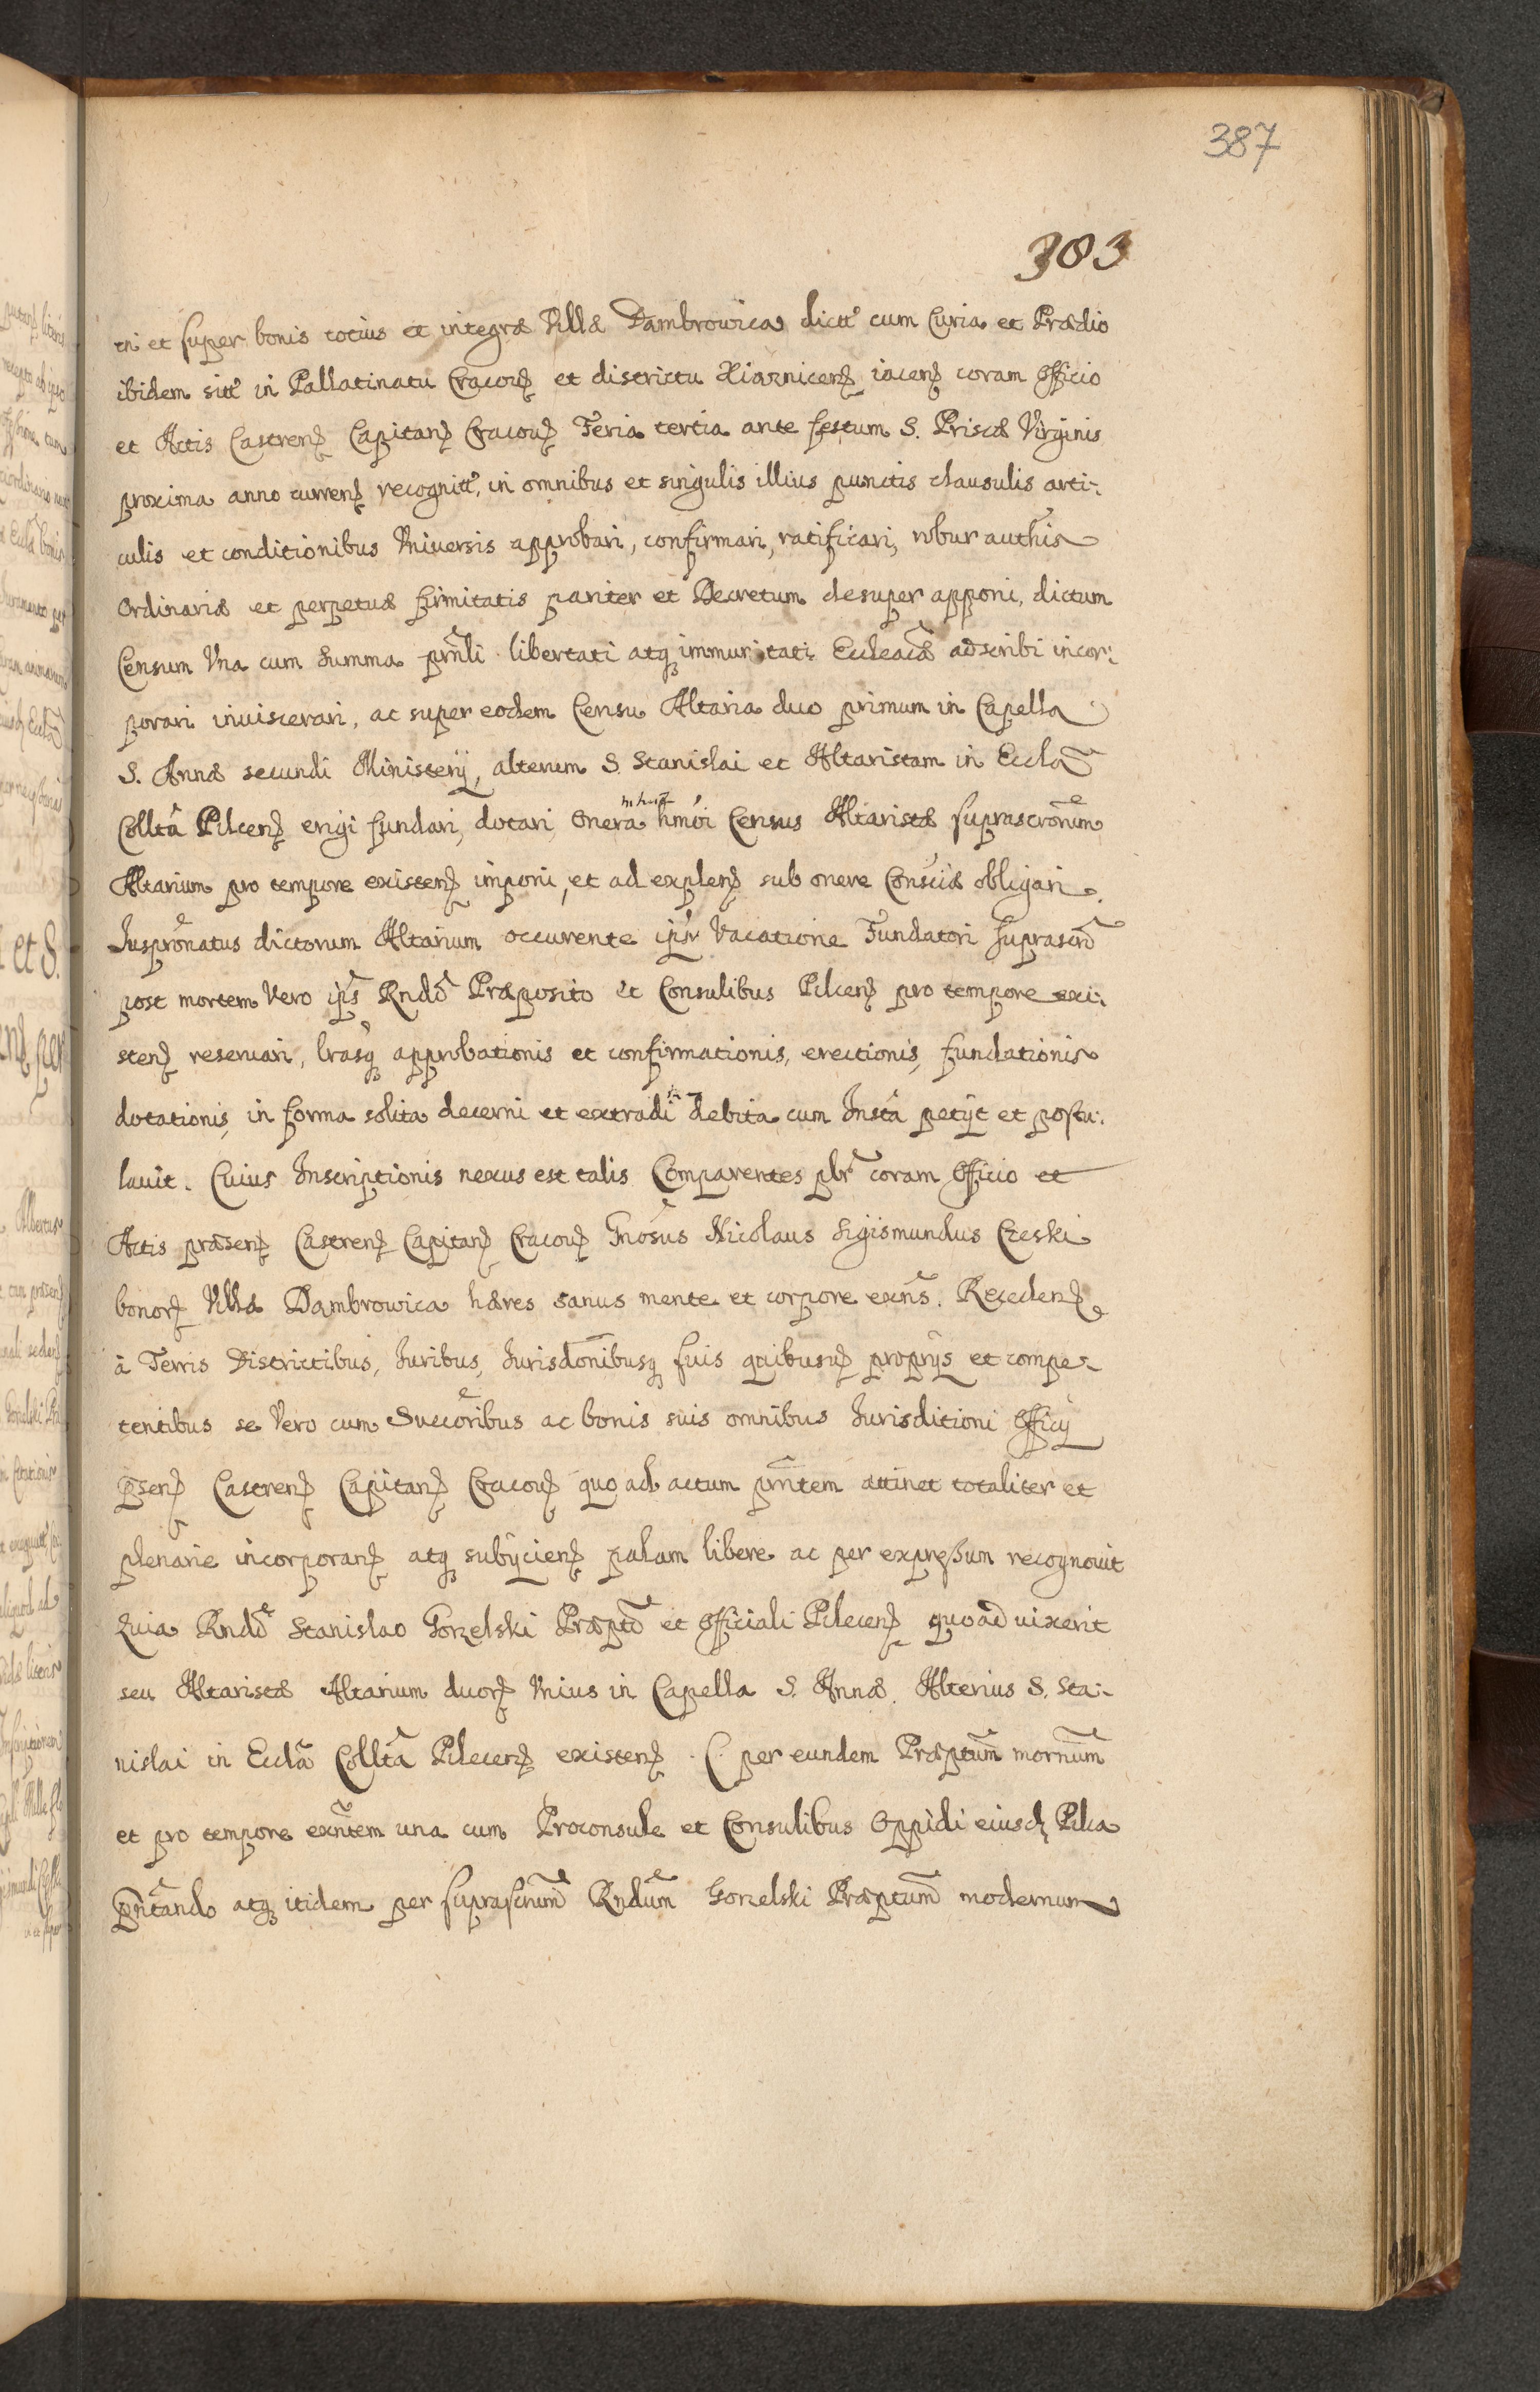 387
303
in et super bonis totius et integræ Villæ Dambrowica dictæ cum Curia et Prædio
ibidem sitæ in Pallatinatu Cracouꝫ et districtu Xiaznicenꝫ iacenꝫ coram Officio
et Actis Castrenꝫ Capitanꝫ Cracouꝫ Feria tertia ante festum S. Priscæ Virginis
proxima anno currenꝫ recognitꝭ, in omnibus et singulis illius punctis clausulis arti-
culis et conditionibus Vniversis approbari, confirmari, ratificari, robur authis
Ordinariæ et perpetuæ firmitatis pariter et Decretum desuper apponi, dictum
Censum Vna cum Summa prñli libertati atqꝫ immunitati Eccleacæ adscribi incor-
porari inviscerari, ac super eodem Censu Altaria duo primum in Capella
S. Annæ secundi Ministerij, alterum S. Stanislai et Altaristam in Eccla
Collta Pilcenꝫ erigi fundari, dotari Onera hmoi Census Altaristæ suprascrorum
Altarium pro tempore existenꝫ imponi, et ad explenꝫ sub onere Consciæ obligari.
Iuspronatus dictorum Altarium occurente ipsr Vacatione Fundatori suprascro
post mortem Vero ips Rndo Præposito et Consulibus Pilcenꝫ pro tempore exi-
stenꝫ reservari, lrasqꝫ approbationis et confirmationis, erectionis, fundationis
dotationis, in forma solita decerni et extradi debita cum Insta petijt et postu-
lavit. Cuius Inscriptionis nexus est talis Comparentes plr coram Officio et
Actis præsenꝫ Castrenꝫ Capitanꝫ Cracouꝫ Gnosus Nicolaus Sigismundus Czeski
bonorꝫ Villæ Dambrowica hæres sanus mente et corpore exns. Recedenꝫ
à Terris Districtibus, Iuribus, Iurisdonibusqꝫ suis quibusuꝫ proprijs et compe-
tentibus se Vero cum Succoribus ac bonis suis omnibus Iurisditioni Officij
psenꝫ Castrenꝫ Capitanꝫ Cracouꝫ quo ad actum prntem attinet totaliter et
plenarie incorporanꝫ atqꝫ subijcienꝫ palam libere ac per expressum recognovit
Quia Rndo Stanislao Gorzelski Præpto et Officiali Pilecenꝫ quoad vixerit
seu Altaristæ Altarium duorꝫ Vnius in Capella S. Annæ. Alterius S. Sta-
nislai in Eccla Collta Pilecenꝫ existenꝫ . C. per eundem Præptum mornum
et pro tempore exntem una cum Proconsule et Consulibus Oppidi eiusdꝫ Pilca
prntando atqꝫ itidem per suprascrnum Rndum Gorzelski Præptum modernum